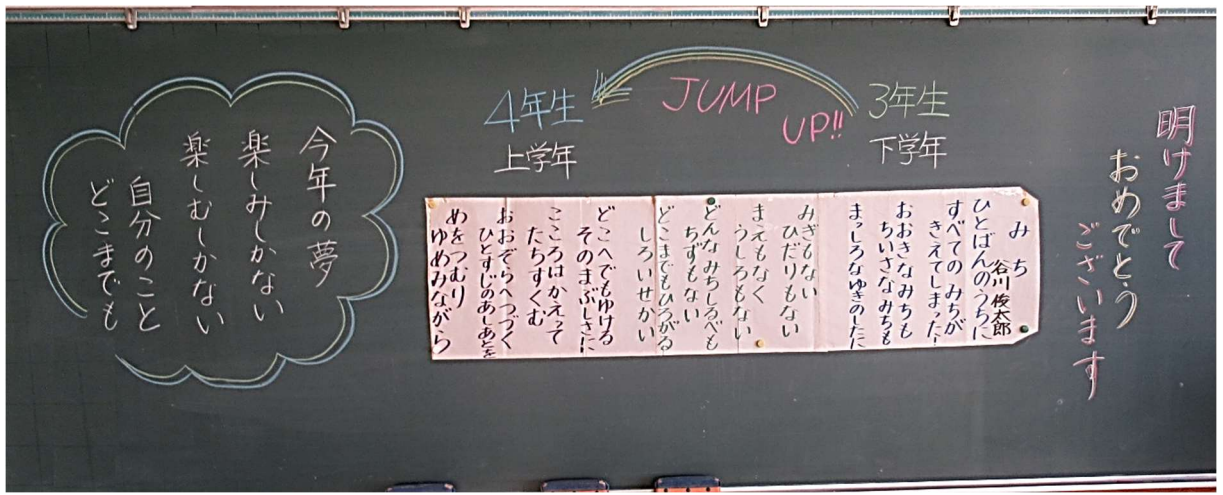 明けまして
おめでとう
ございます
3年生
下学年
JUMP
UP!!
4年生
上学年
みち
谷川俊太郎
ひとばんのうちに
すべてのみちが
きえてしまった!
おおきなみちも
ちいさなみちも
まっしろなゆきのしたに
みぎもない
ひだりもない
まえもなく
うしろもない
どんなみちしるべも
ちずもない
どこまでもひろがる
しろいせかい
どこへでもゆける
そのまぶしさに
こころはかえって
たちすくむ
おおぞらへつづく
ひとすじのあしあとを
めをつむり
ゆめみながら
今年の夢
楽しみしかない
楽しむしかない
自分のこと
どこまでも